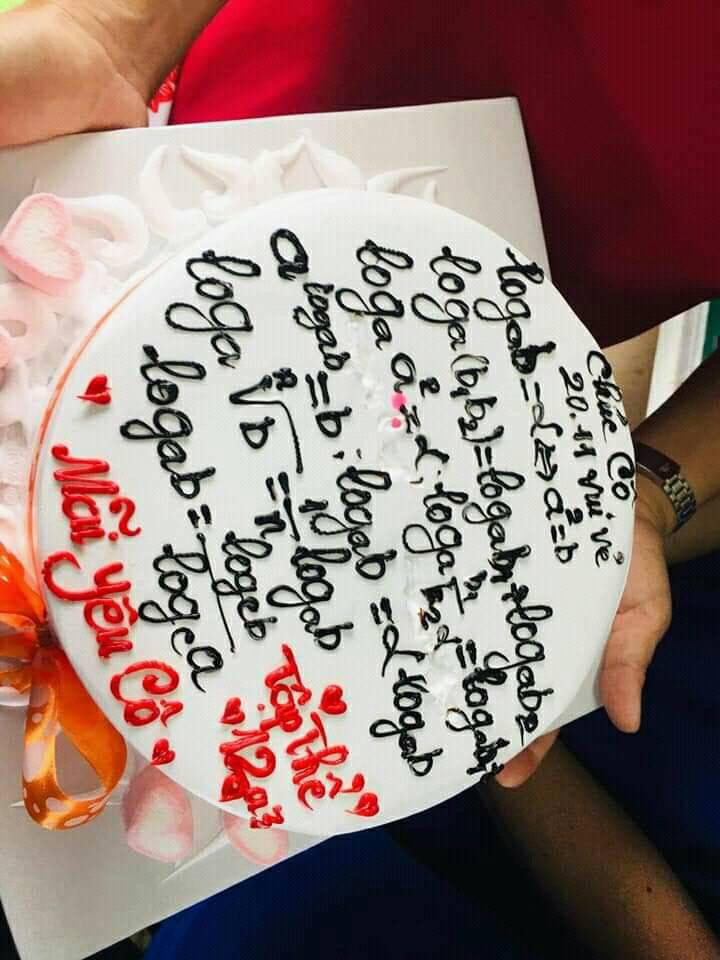 Chúc Cô
20.11 vui vẻ
logab = α ⇔ a^α = b
loga(b₁b₂) = logab₁ + logab₂
loga a^α = α; loga b₁/b₂ = logab₁
a^logab = b; logab^α = α logab
loga ⁿ√b = 1/n logab
logab = logcb/logca
Mãi yêu Cô
Tập Thể